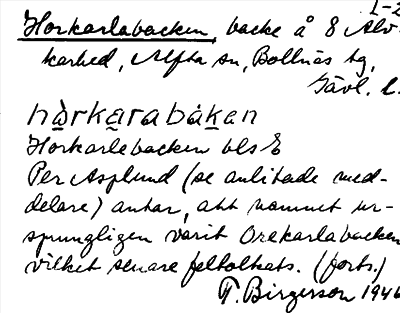 1-2
Horkarlabacken, backe å 8 Alv-
karhed, Alfta sn, Bollnäs tg,
Gävl. l.
hàrkarabákan
Horkarlebacken bls E
Per Asplund (se anlitade med-
delare) antar, att namnet ur-
sprungligen varit Orekarlabacken
vilket senare feltolkats. (forts.)
T. Birgerson 1946